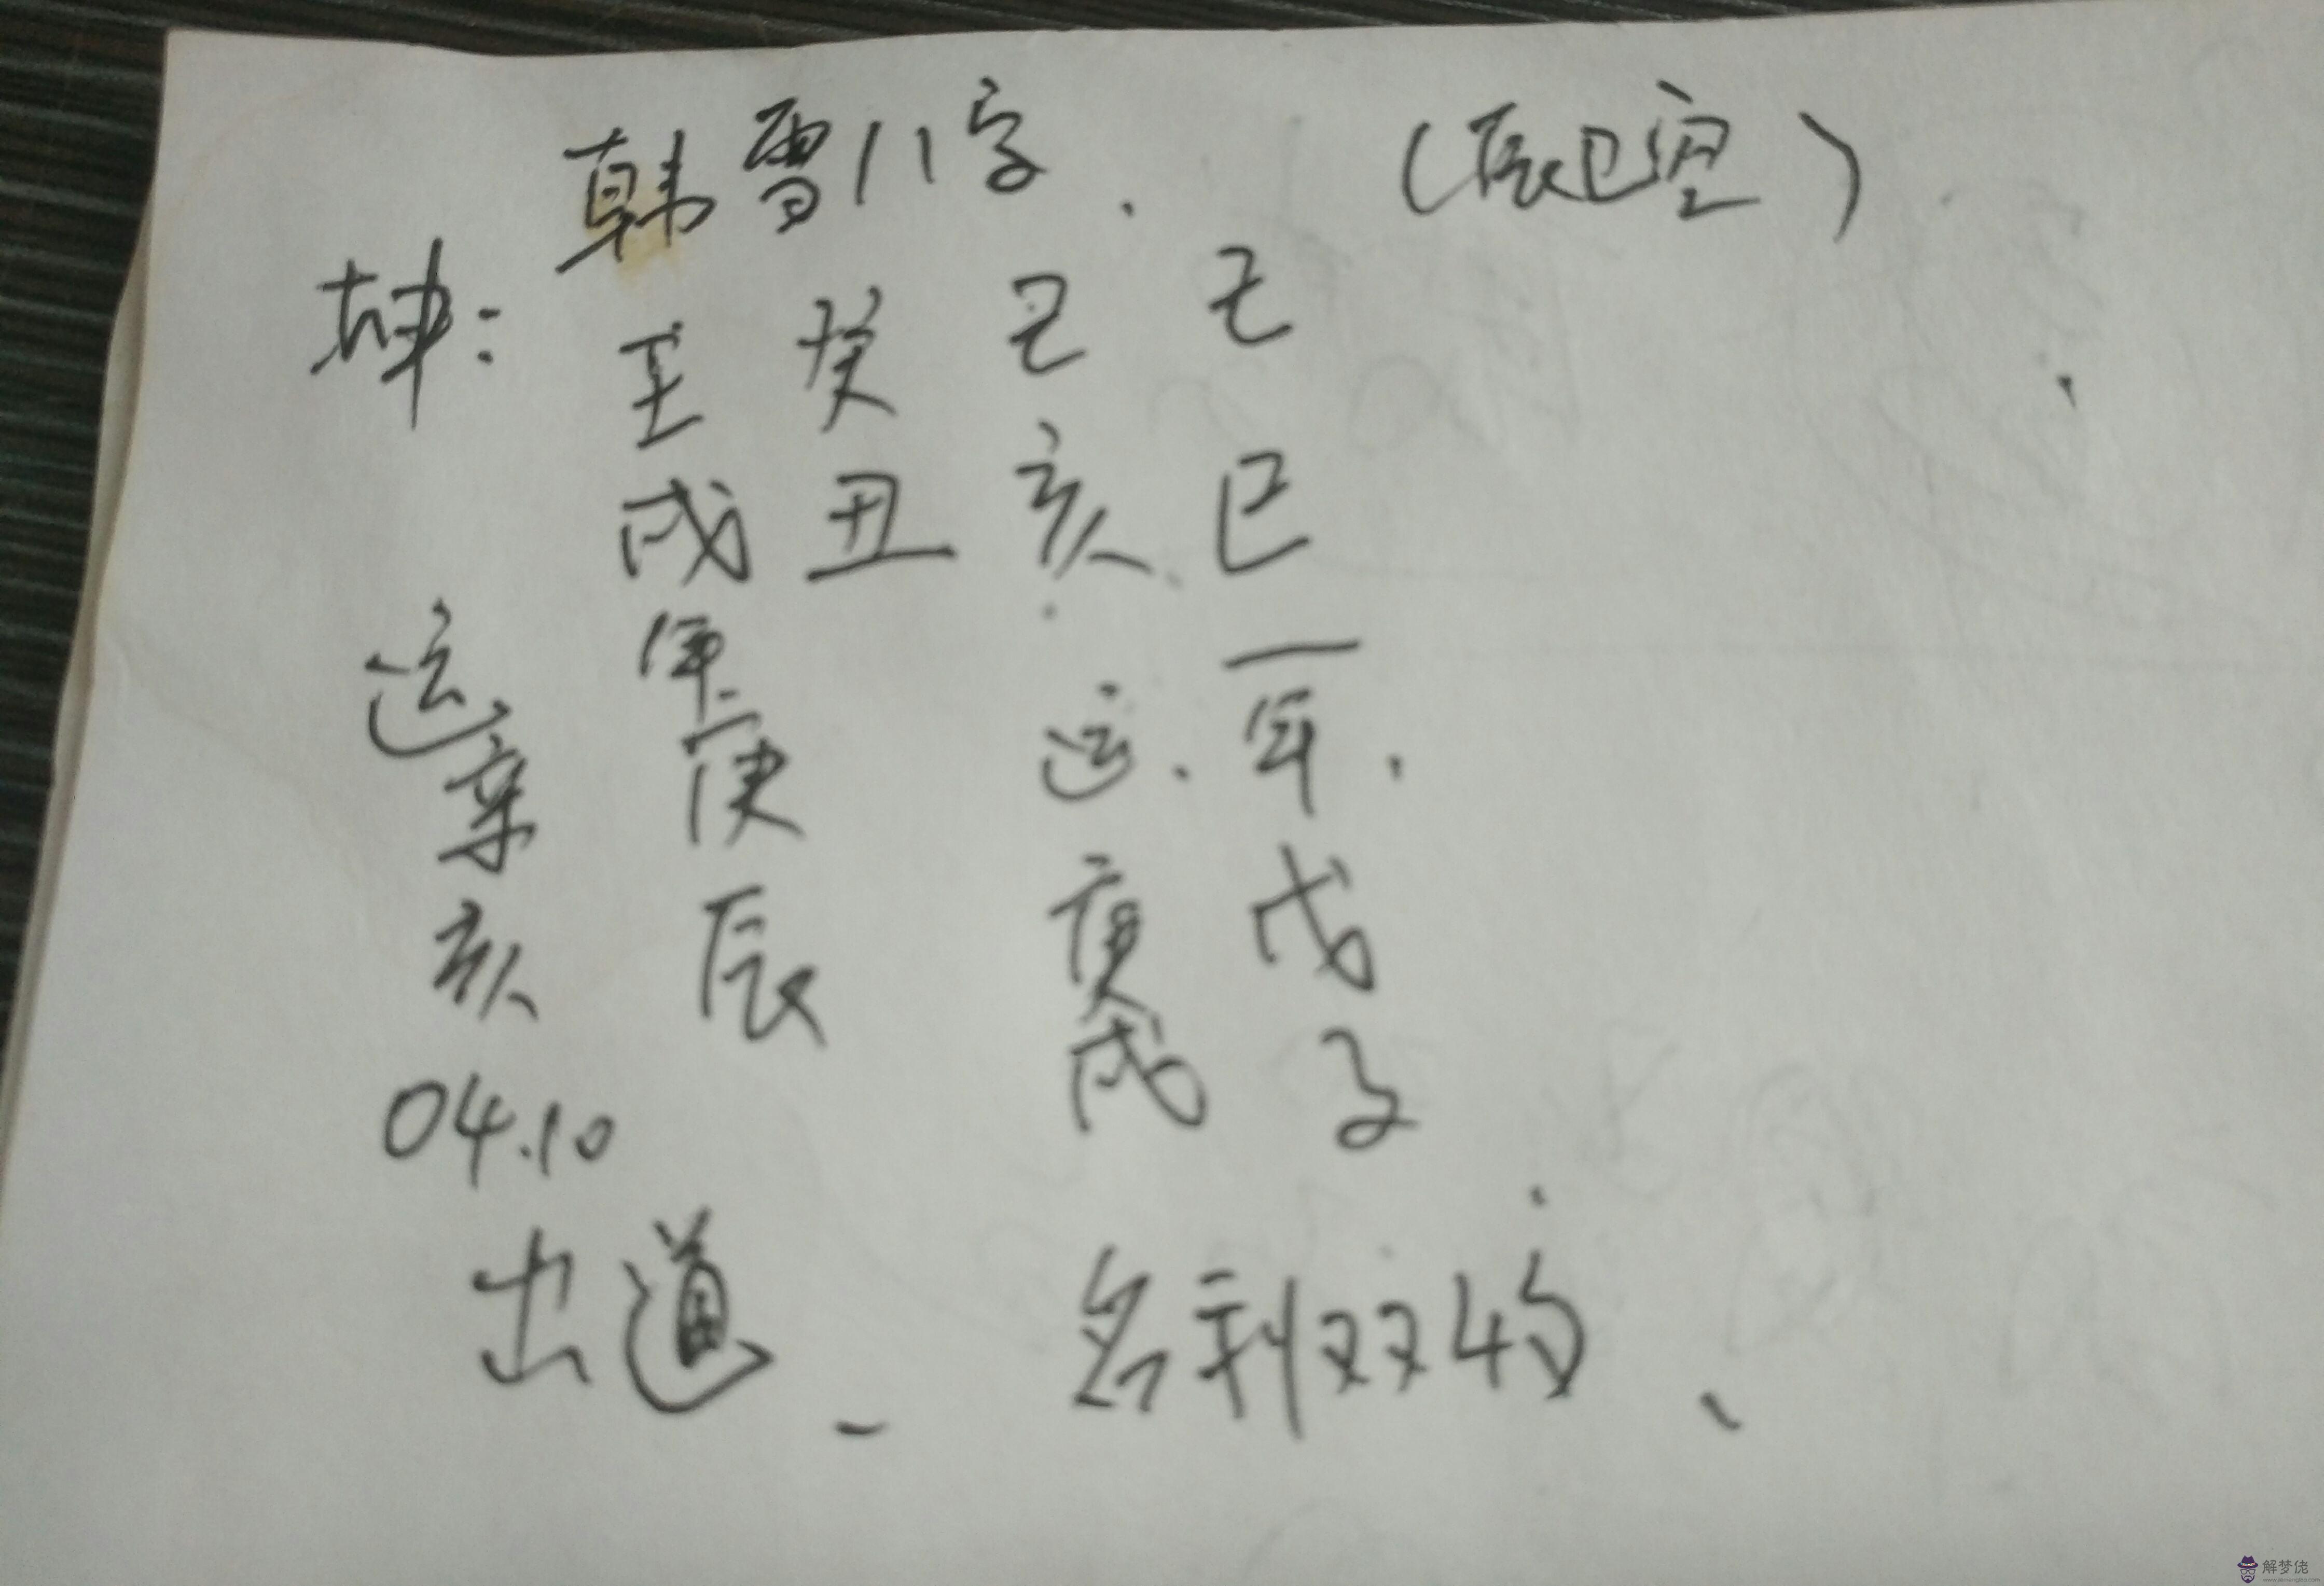 韩雪八字. (辰巳空)
坤: 壬 癸 己 己
戌 丑 亥 巳
运 年 运. 年.
辛 庚 庚 戊
亥 辰 戌 子
04.10
出道、 名利双
解梦佬